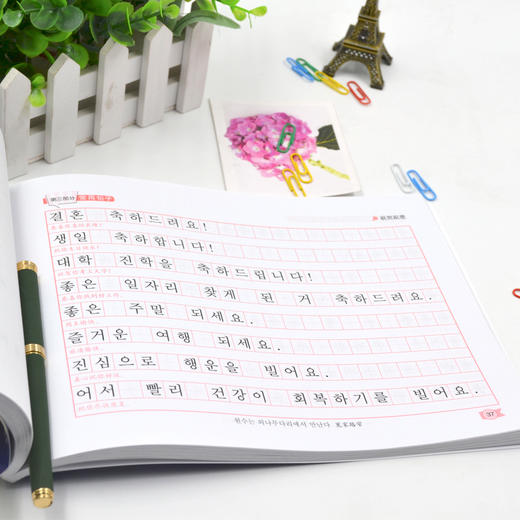 第三部分
祝贺祝愿
결혼 축하드려요!
생일 축하합니다!
대학 진학을 축하드립니다!
좋은 일자리 찾게 된 거 축하드려요.
좋은 주말 되세요.
즐거운 여행 되세요.
진심으로 행운을 빌어요.
어서 빨리 건강이 회복하기를 빌어요.
원수는 외나무다리에서 만난다 冤家路窄
37